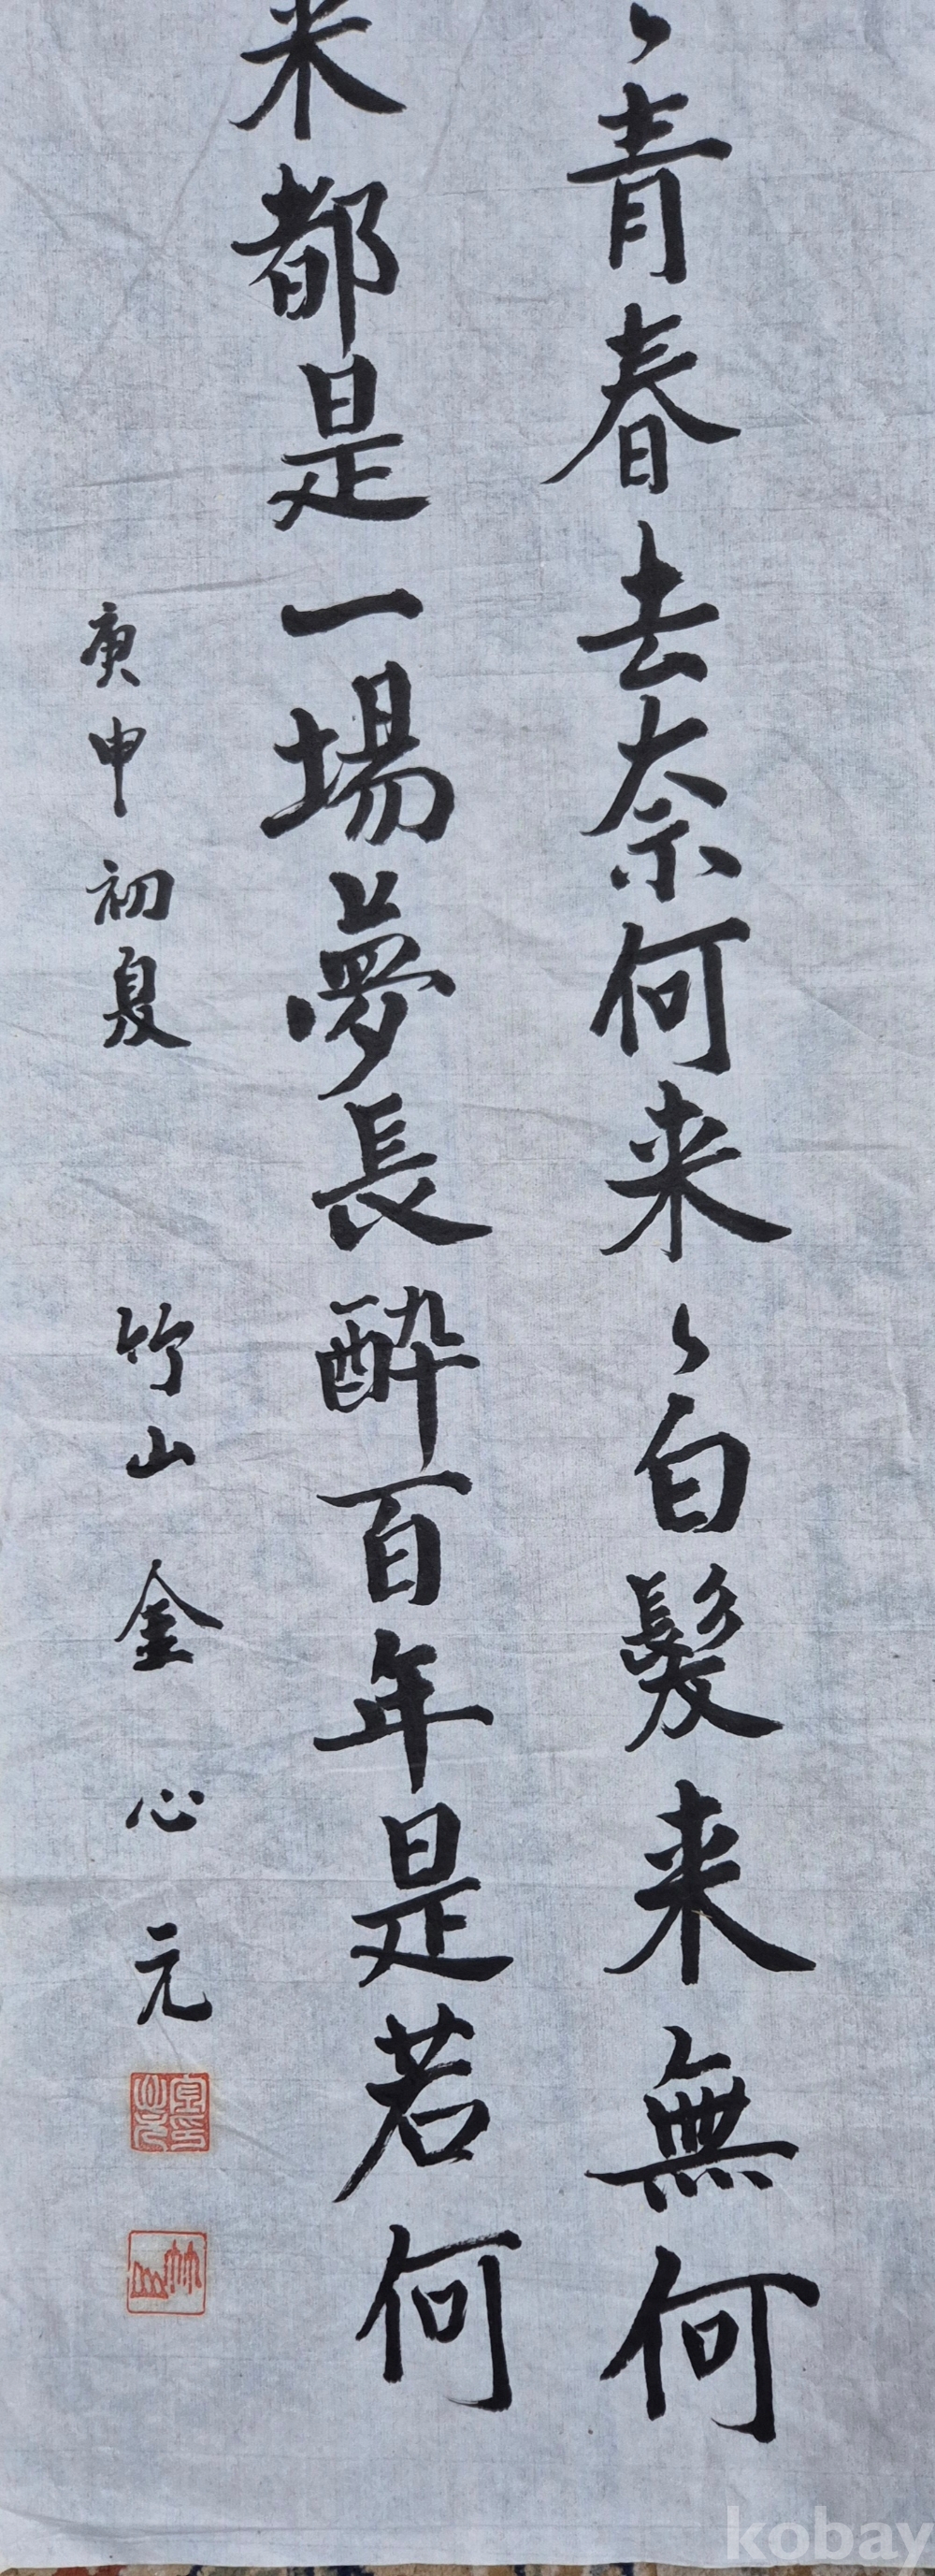 〻青春去奈何来〻白髮来無何
来都是一場夢長醉百年是若何
庚申初夏 竹山 金心元
竹山
kobay